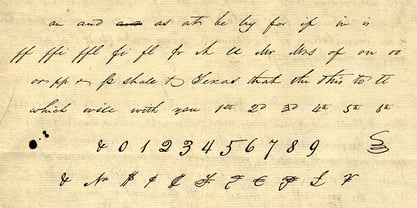 an and and as at be by for if in is
ff ffi ffl fi fl fr th ll Mr Mrs of on oo
or pp ß shall to Texas that the this to tt
which will with you 1st 2d 3d 4th 5th 6th
& 0 1 2 3 4 5 6 7 8 9
& No $ ¢ £ ¥